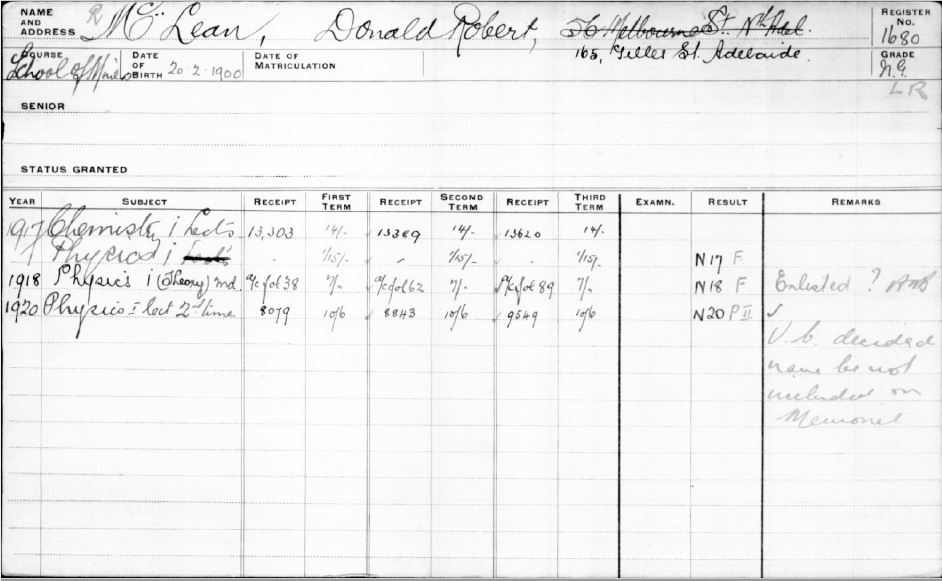 NAME AND ADDRESS R McLean, Donald Robert, Melbourne St. Nth Adel. REGISTER No. 1680
165, Gilles St. Adelaide.
COURSE School of Mines DATE OF BIRTH 20-2-1900 DATE OF MATRICULATION GRADE N.G.
LR
SENIOR
STATUS GRANTED
YEAR SUBJECT RECEIPT FIRST TERM RECEIPT SECOND TERM RECEIPT THIRD TERM EXAMN. RESULT REMARKS
1917 Chemistry i Lects 13,303 14/- 13389 14/- 13620 14/-
Physics i 1/15/- 1/15/- 1/15/- N17 F
1918 Physics i (Theory) 38 7/- 62 7/- 89 7/- N18 F Enlisted ?
1920 Physics I lect 2nd time 8079 10/6 8843 10/6 9549 10/6 N20 P II ✓
V.C. decided
name be not
included on
Memorial